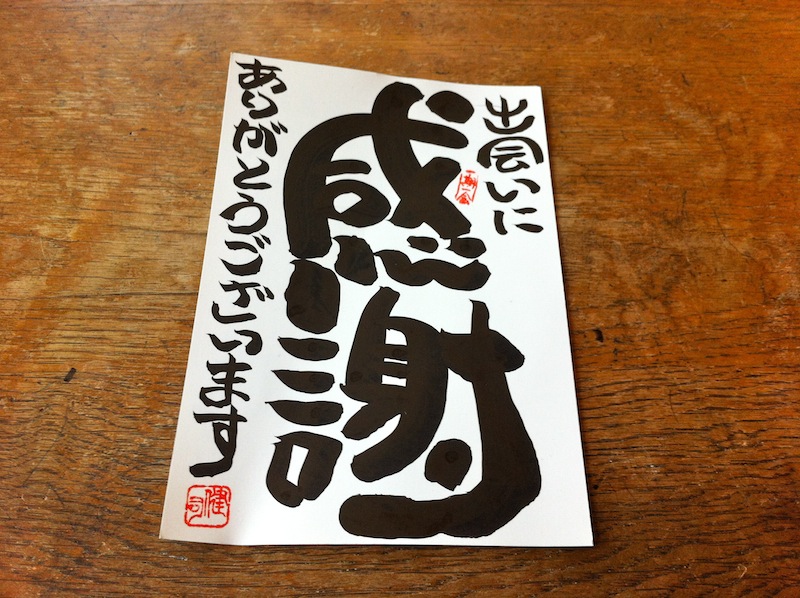 出会いに
感謝
ありがとうございます